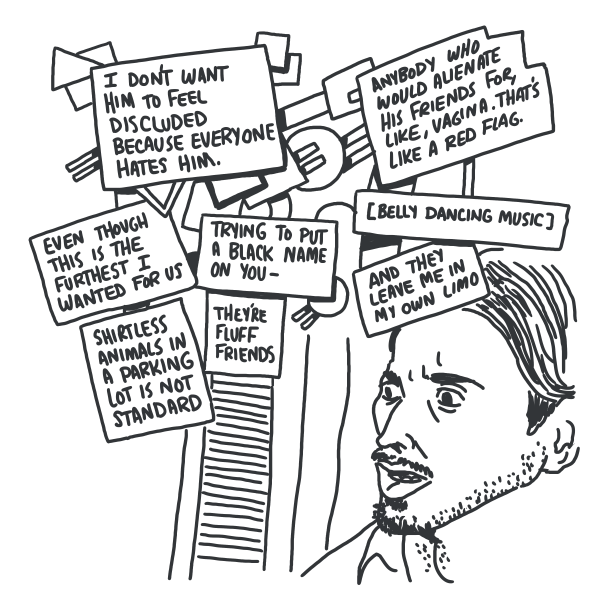 I DON'T WANT
HIM TO FEEL
DISCLUDED
BECAUSE EVERYONE
HATES HIM.
ANYBODY WHO
WOULD ALIENATE
HIS FRIENDS FOR,
LIKE, VAGINA. THAT'S
LIKE A RED FLAG.
[BELLY DANCING MUSIC]
EVEN THOUGH
THIS IS THE
FURTHEST I
WANTED FOR US
TRYING TO PUT
A BLACK NAME
ON YOU-
AND THEY
LEAVE ME IN
MY OWN LIMO
SHIRTLESS
ANIMALS IN
A PARKING
LOT IS NOT
STANDARD
THEY'RE
FLUFF
FRIENDS